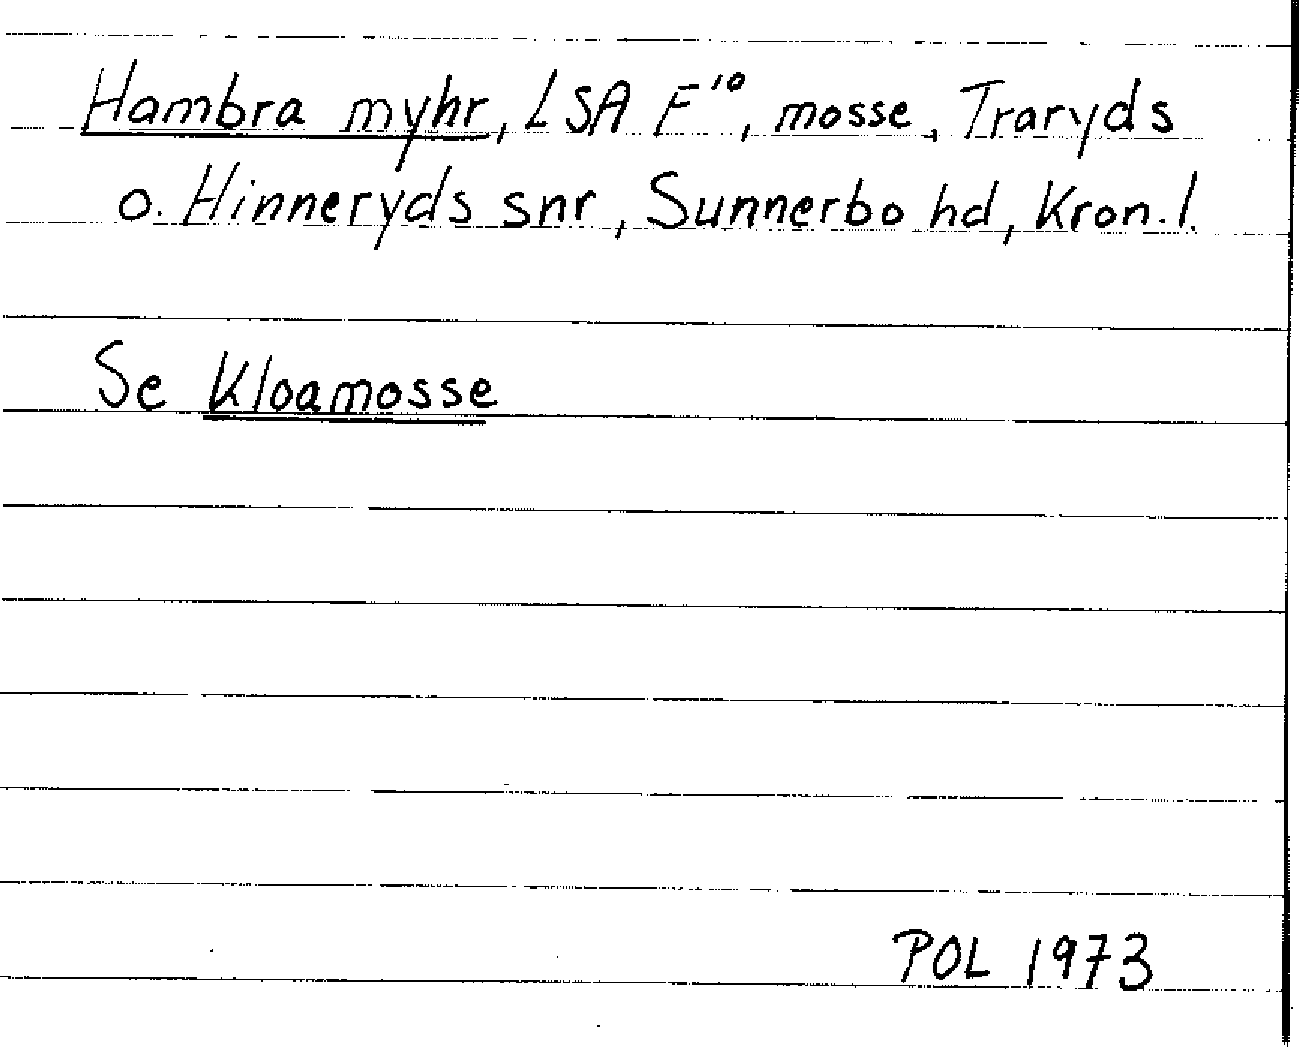 Hambra myhr, LSA F¹⁰, mosse, Traryds
o. Hinneryds snr, Sunnerbo hd, Kron.l.
Se Kloamosse
POL 1973